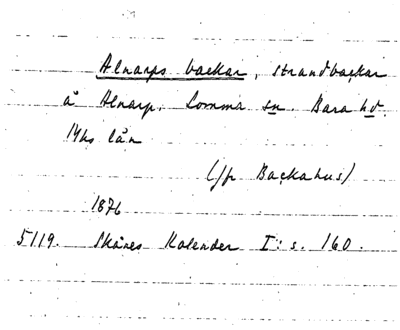 Alnarps backar, strandbackar
å Alnarp, Lomma sn. Bara hd.
Mhs län
(jfr Backahus)
1876
5119. Skånes Kalender I: s. 160.